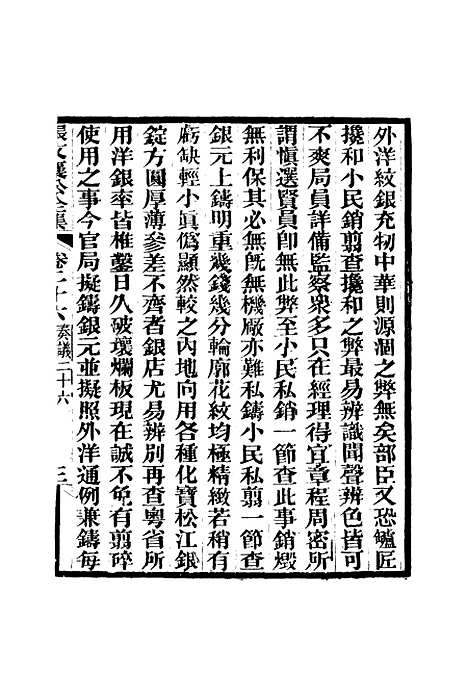 外洋紋銀充牣中華則源涸之弊無矣部臣又恐鑪匠
攙和小民銷剪查攙和之弊最易辨識聞聲辨色皆可
不爽局員詳備監察衆多只在經理得宜章程周密所
謂愼選賢員卽無此弊至小民私銷一節查此事銷燬
無利保其必無旣無機廠亦難私鑄小民私剪一節查
銀元上鑄明重幾錢幾分輪廓花紋均極精緻若稍有
虧缺輕小眞僞顯然較之內地向用各種化寶松江銀
錠方圓厚薄參差不齊者銀店尤易辨別再查粵省所
用洋銀率皆椎鑿日久破壞爛板現在誠不免有剪碎
使用之事今官局擬鑄銀元並擬照外洋通例兼鑄每
張文襄公全集 卷二十六 奏議二十六 三